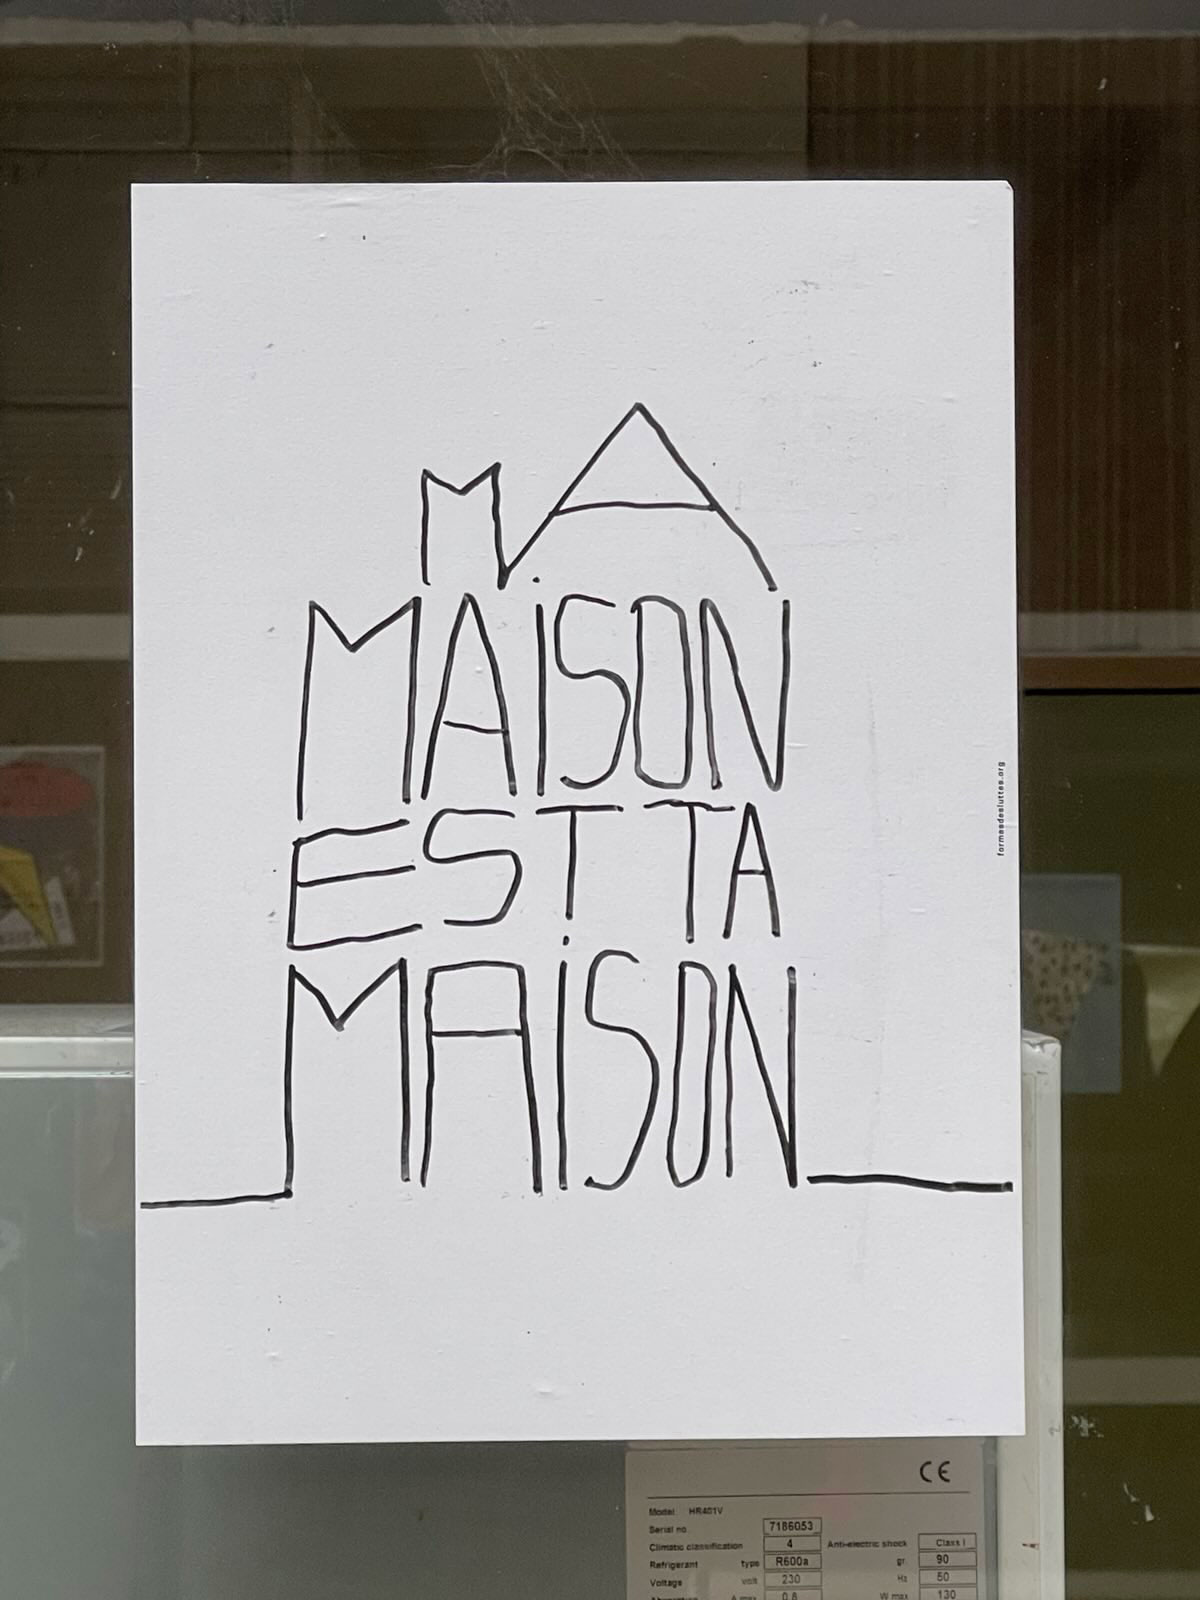 MA
MAiSON
EST TA
MAiSON
formesdesluttes.org
CE
Model HR401V
Serial no. 7186053
Climatic classification 4 Anti-electric shock Class I
Refrigerant type R600a gr. 90
Voltage volt 230 Hz 50
A max 0.8 W max 130